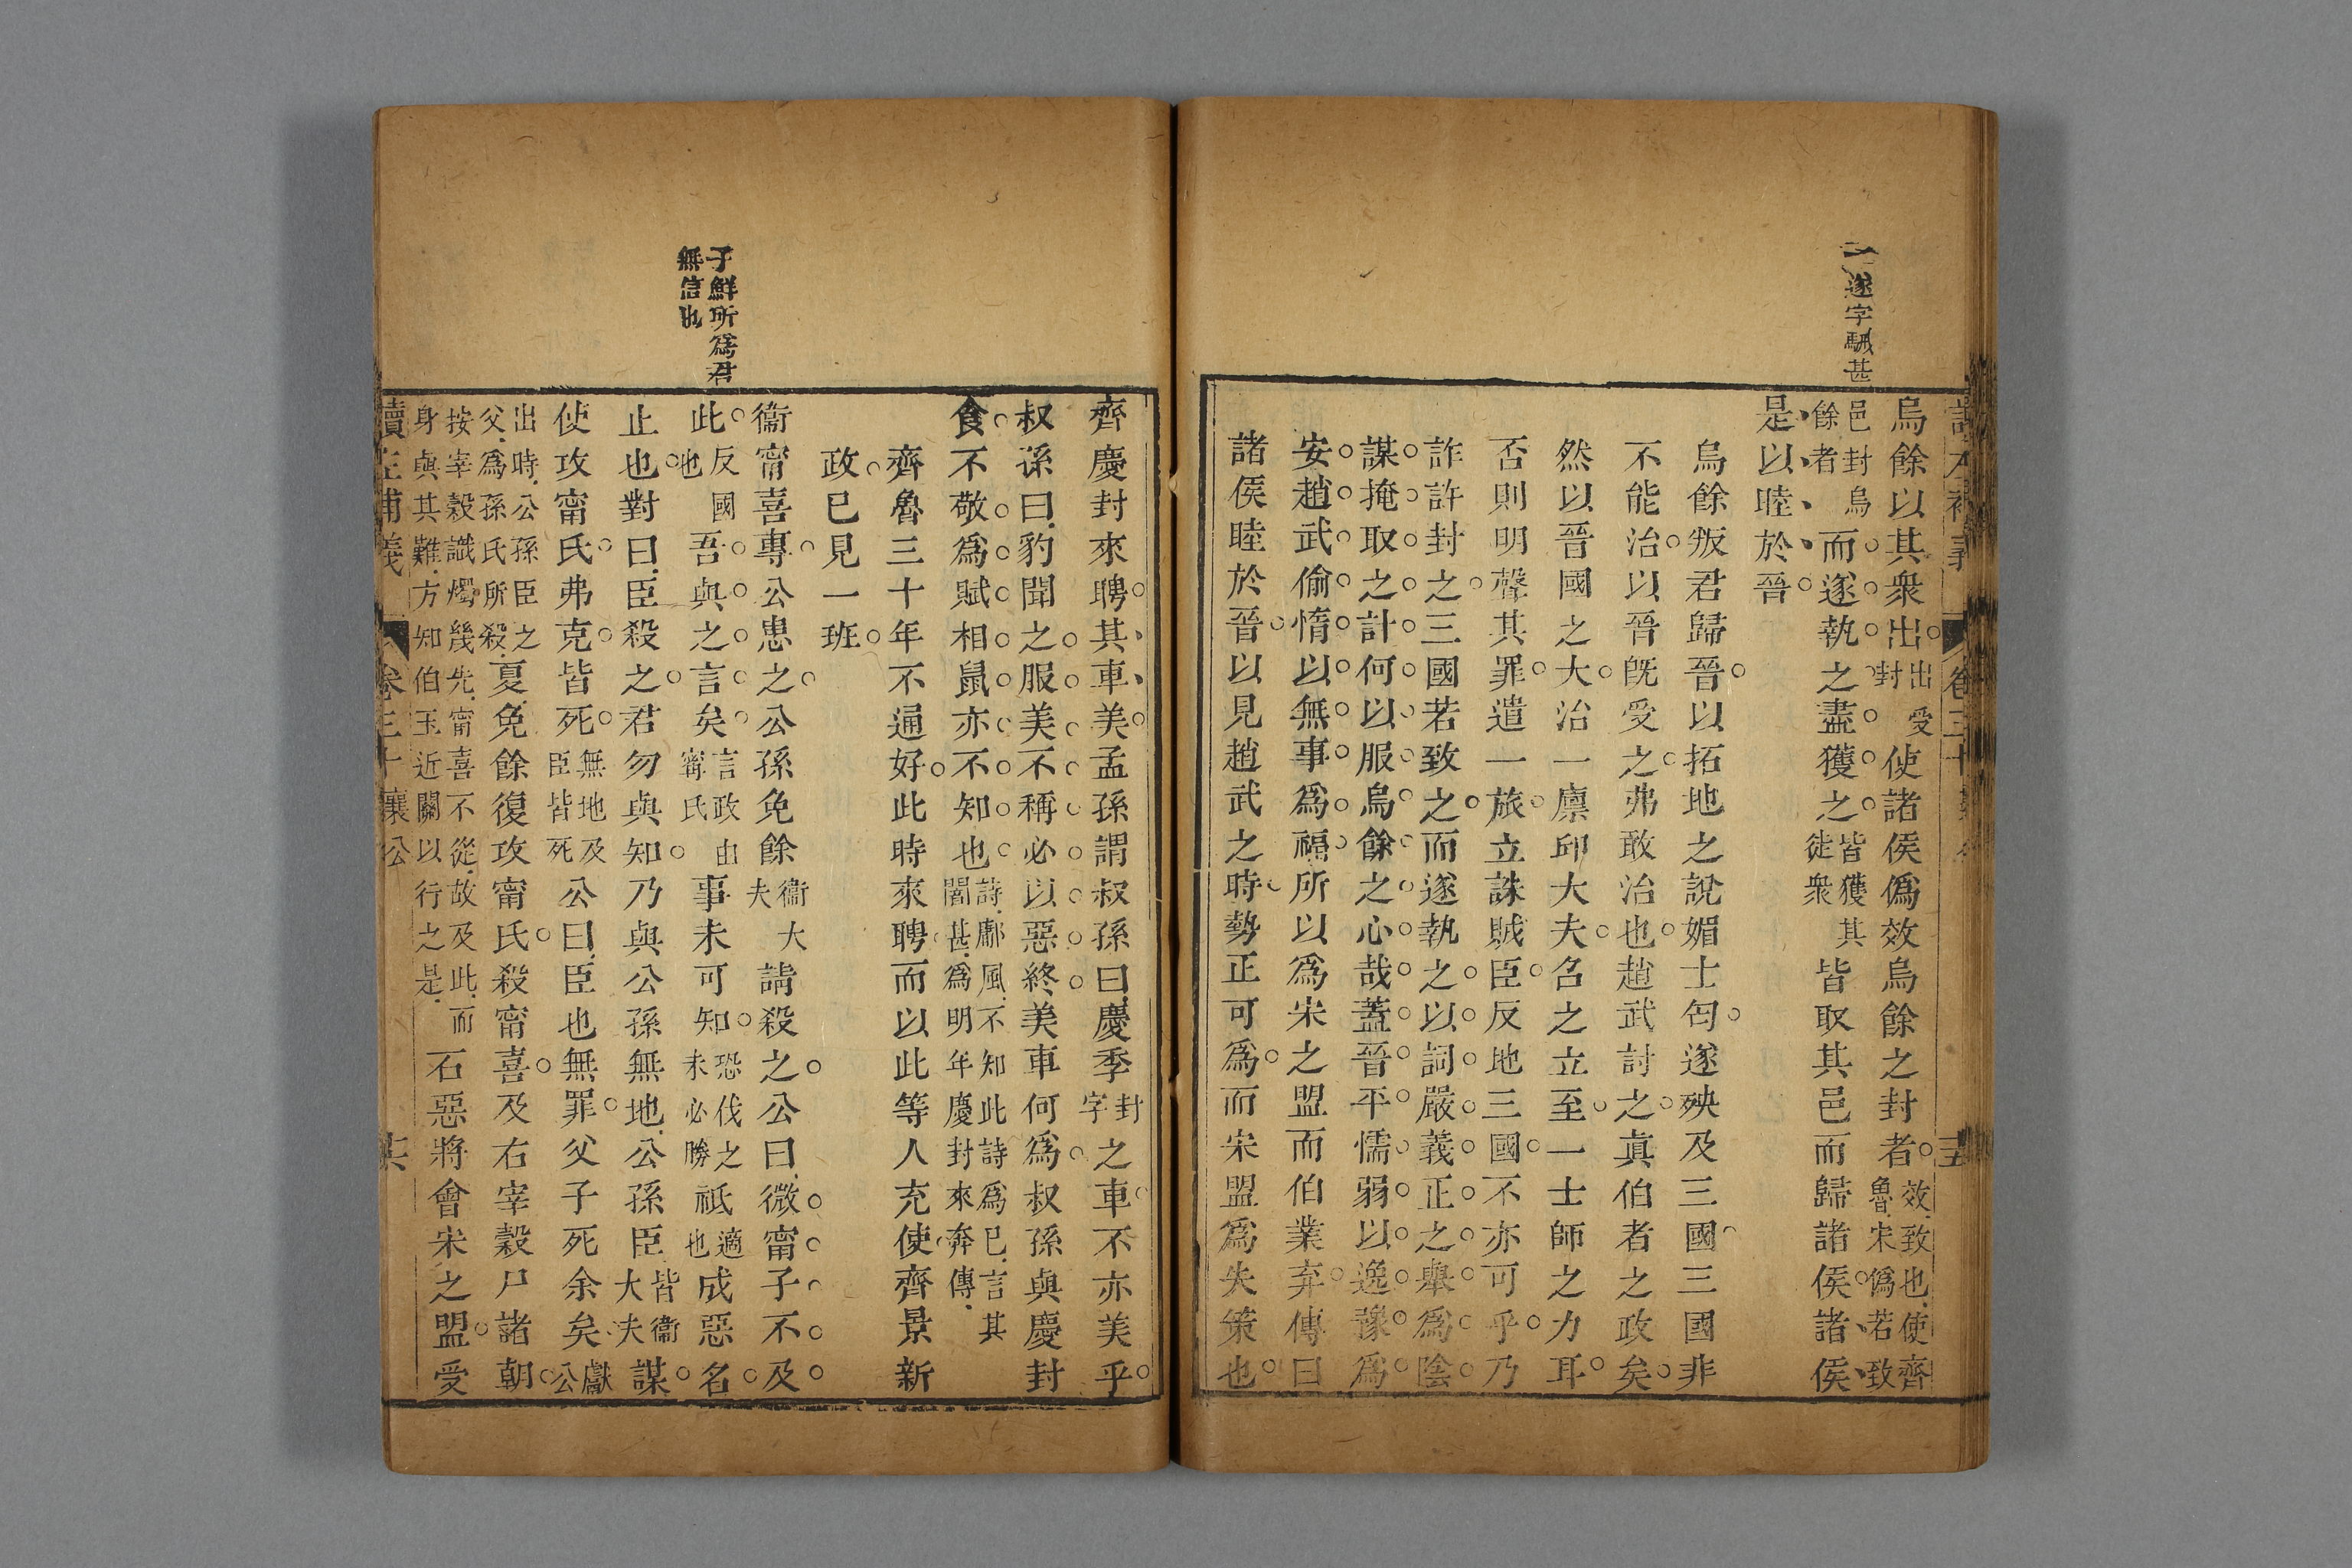 遂字馘甚
烏餘以其衆出出受封使諸侯僞效烏餘之封者效致也使齊魯宋僞若致
邑封烏餘者而遂執之盡獲之皆獲其徒衆皆取其邑而歸諸侯諸侯
是以睦於晉
烏餘叛君歸晉以拓地之說媚士匄遂殃及三國三國非
不能治以晉旣受之弗敢治也趙武討之眞伯者之政矣
然以晉國之大治一廪邱大夫名之立至一士師之力耳
否則明聲其罪遣一旅立誅賊臣反地三國不亦可乎乃
詐許封之三國若致之而遂執之以詞嚴義正之舉爲陰
謀掩取之計何以服烏餘之心哉蓋晉平懦弱以逸豫爲
安趙武偷惰以無事爲福所以爲宋之盟而伯業弃傳曰
諸侯睦於晉以見趙武之時勢正可爲而宋盟爲失策也
子鮮所爲君
無信也
齊慶封來聘其車美孟孫謂叔孫曰慶季封字之車不亦美乎
叔孫曰豹聞之服美不稱必以惡終美車何爲叔孫與慶封
食不敬爲賦相鼠亦不知也詩鄘風不知此詩爲已言其闇甚爲明年慶封來奔傳
齊魯三十年不通好此時來聘而以此等人充使齊景新
政已見一班
衞甯喜專公患之公孫免餘衞大夫請殺之公曰微甯子不及
此反國也吾與之言矣言政由甯氏事未可知恐伐之未必勝祗適也成惡名
止也對曰臣殺之君勿與知乃與公孫無地公孫臣皆衞大夫謀
使攻甯氏弗克皆死無地及臣皆死公曰臣也無罪父子死余矣獻公
出時公孫臣之父爲孫氏所殺夏免餘復攻甯氏殺甯喜及右宰穀尸諸朝
按宰穀識燭幾先甯喜不從故及此而身與其難方知伯玉近關以行之是石惡將會宋之盟受
讀左補義 卷三十 襄公